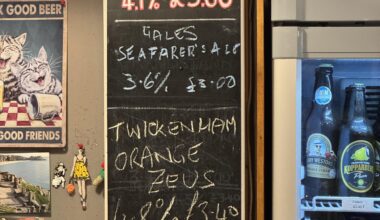 K GOOD BEER
GOOD FRIENDS
4.1% £3.00
GALES
SEAFARER'S ALE
3.6% £3.00
TWICKENHAM
ORANGE
ZEUS
4.8% £3.40
KOPPARBERG
Pear